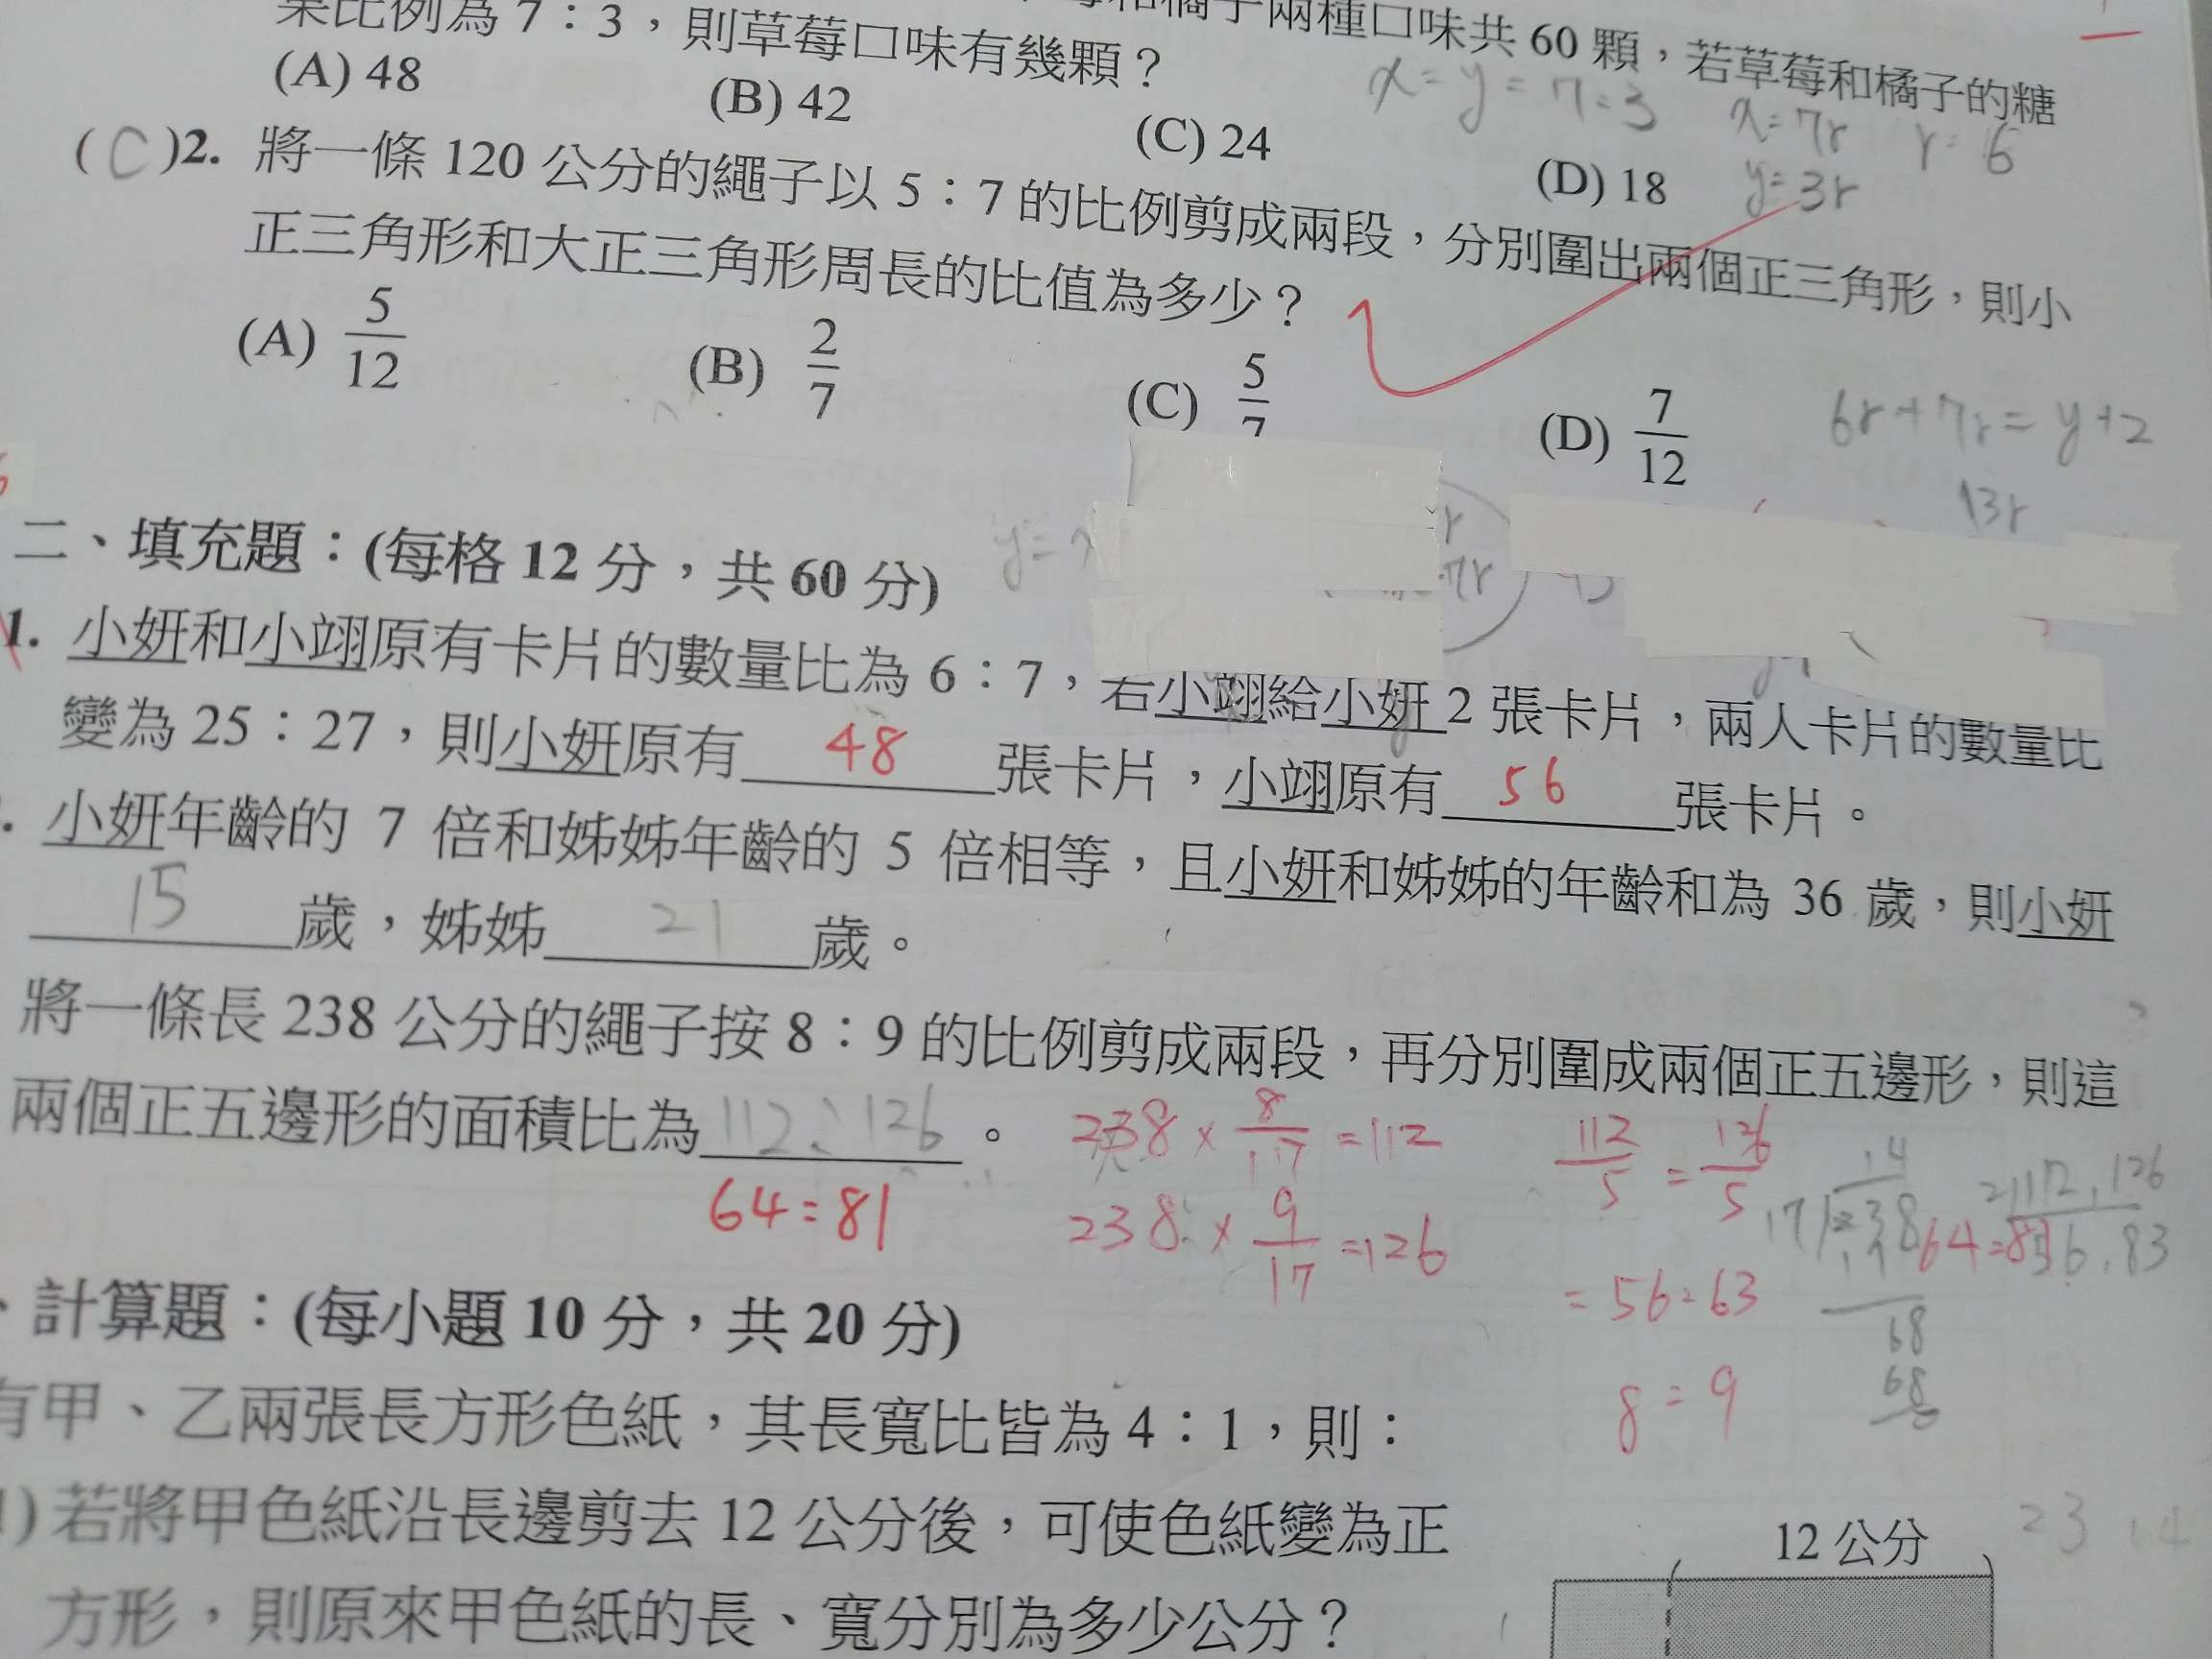 和橘子兩種口味共 60 顆，若草莓和橘子的糖
果比例為 7：3，則草莓口味有幾顆？
(A) 48 (B) 42 (C) 24 (D) 18
x = y = 7 : 3 x = 7r r = 6
y = 3r
( C )2. 將一條 120 公分的繩子以 5：7 的比例剪成兩段，分別圍出兩個正三角形，則小
正三角形和大正三角形周長的比值為多少？
(A) 5/12 (B) 2/7 (C) 5/7 (D) 7/12
6r + 7r = y + 2
13r
二、填充題：(每格 12 分，共 60 分)
y =
r
7r
1. 小妍和小翊原有卡片的數量比為 6：7，若小翊給小妍 2 張卡片，兩人卡片的數量比
變為 25：27，則小妍原有 48 張卡片，小翊原有 56 張卡片。
小妍年齡的 7 倍和姊姊年齡的 5 倍相等，且小妍和姊姊的年齡和為 36 歲，則小妍
15 歲，姊姊 21 歲。
將一條長 238 公分的繩子按 8：9 的比例剪成兩段，再分別圍成兩個正五邊形，則這
兩個正五邊形的面積比為 112：126 。
64 = 81
238 × 8/17 = 112
238 × 9/17 = 126
112/5 = 126/5
= 56 : 63
8 = 9
14
17)238
17
68
68
2)112,126
56, 83
64 = 81
、計算題：(每小題 10 分，共 20 分)
有甲、乙兩張長方形色紙，其長寬比皆為 4：1，則：
1) 若將甲色紙沿長邊剪去 12 公分後，可使色紙變為正
方形，則原來甲色紙的長、寬分別為多少公分？
12 公分
23
14